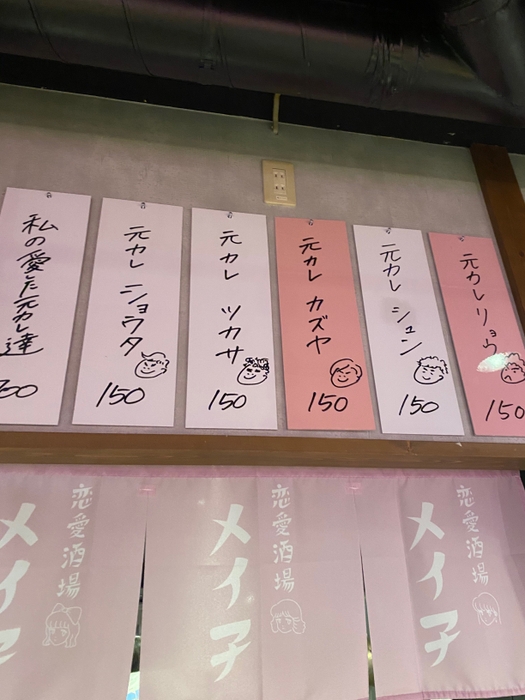 元カレリョウ
150
元カレ シュン
150
元カレ カズヤ
150
元カレ ツカサ
150
元カレ ショウタ
150
私の愛した元カレ達
恋愛酒場
メイ子
恋愛酒場
メイ子
恋愛酒場
メイ子